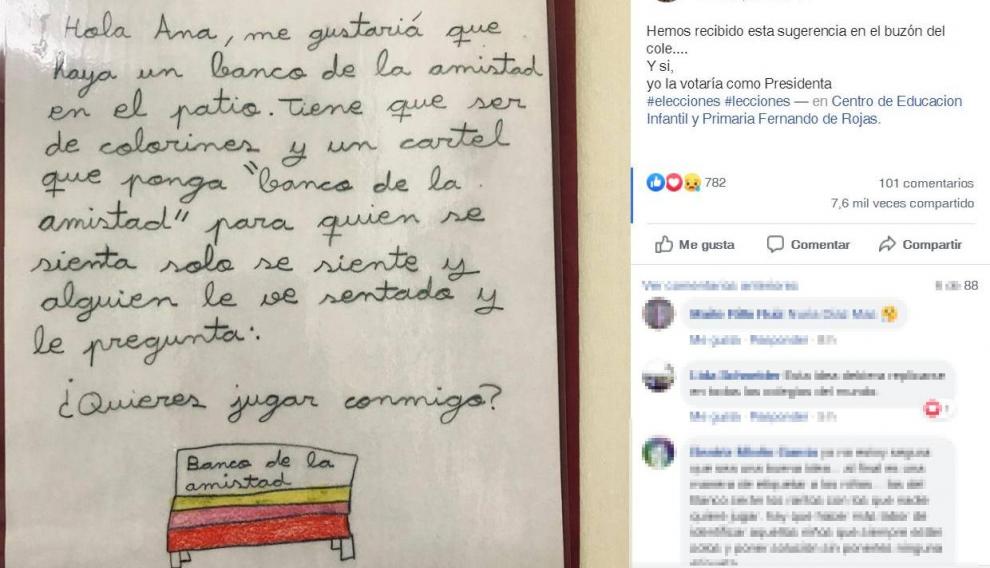 Hola Ana, me gustariá que
haya un banco de la amistad
en el patio. Tiene que ser
de colorines y un cartel
que ponga "banco de la
amistad" para quien se
sienta solo se siente y
alguien le ve sentado y
le pregunta:
¿Quieres jugar conmigo?
Banco de la
amistad
Hemos recibido esta sugerencia en el buzón del
cole....
Y si,
yo la votaría como Presidenta
#elecciones #lecciones — en Centro de Educacion
Infantil y Primaria Fernando de Rojas.
782
101 comentarios
7,6 mil veces compartido
Me gusta
Comentar
Compartir
Ver comentarios anteriores
de 88
Me gusta · Responder
Esta idea debiera replicarse
en todos los colegios del mundo.
Me gusta · Responder
yo no estoy segura
que sea una buena idea... al final es una
manera de etiquetar a los niños...